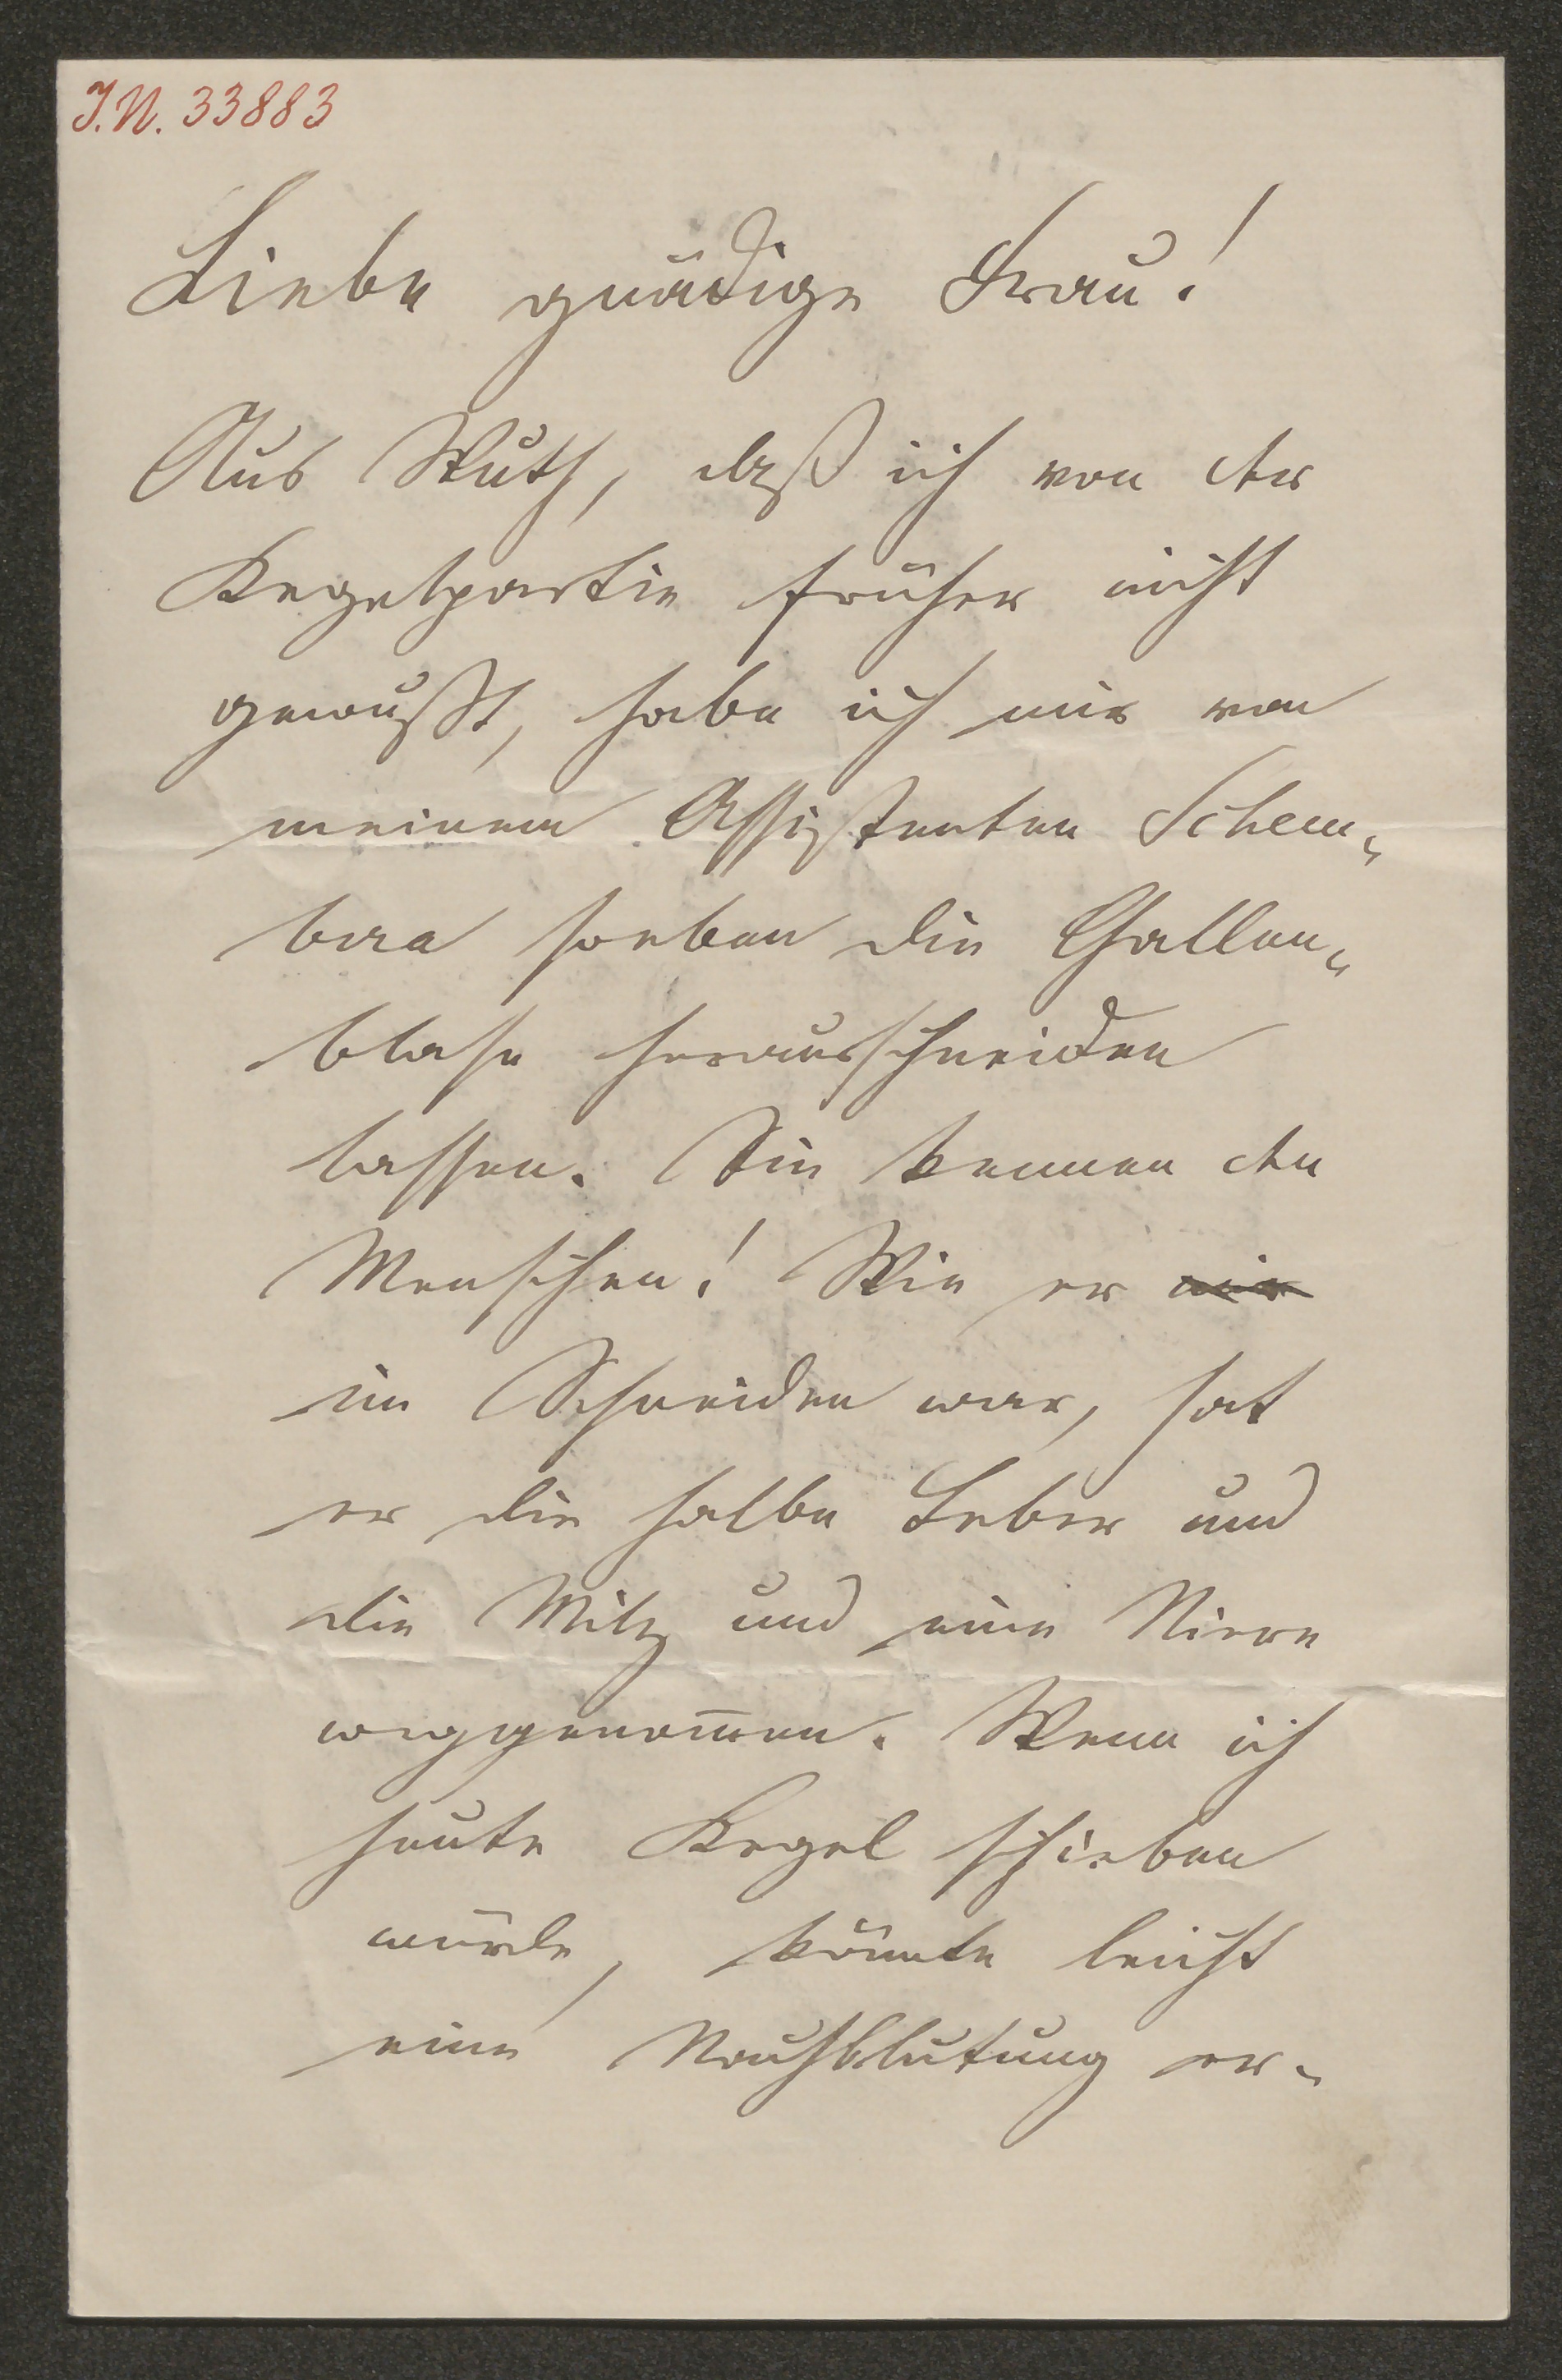 J.N. 33883
Liebe gnädige Frau!
Aus Wuth, daß ich von der
Kegelpartie früher nicht
gewußt, habe ich mir von
meinem Assistenten Schem„
bera soeben die Gallen„
blase herausschneiden
lassen. Sie kennen den
Menschen! Wie er mir
im Schneiden war, hat
er die halbe Leber und
die Milz und eine Niere
weggenom̅en. Wenn ich
heute Kegel schieben
würde, könnte leicht
eine Nachblutung er-